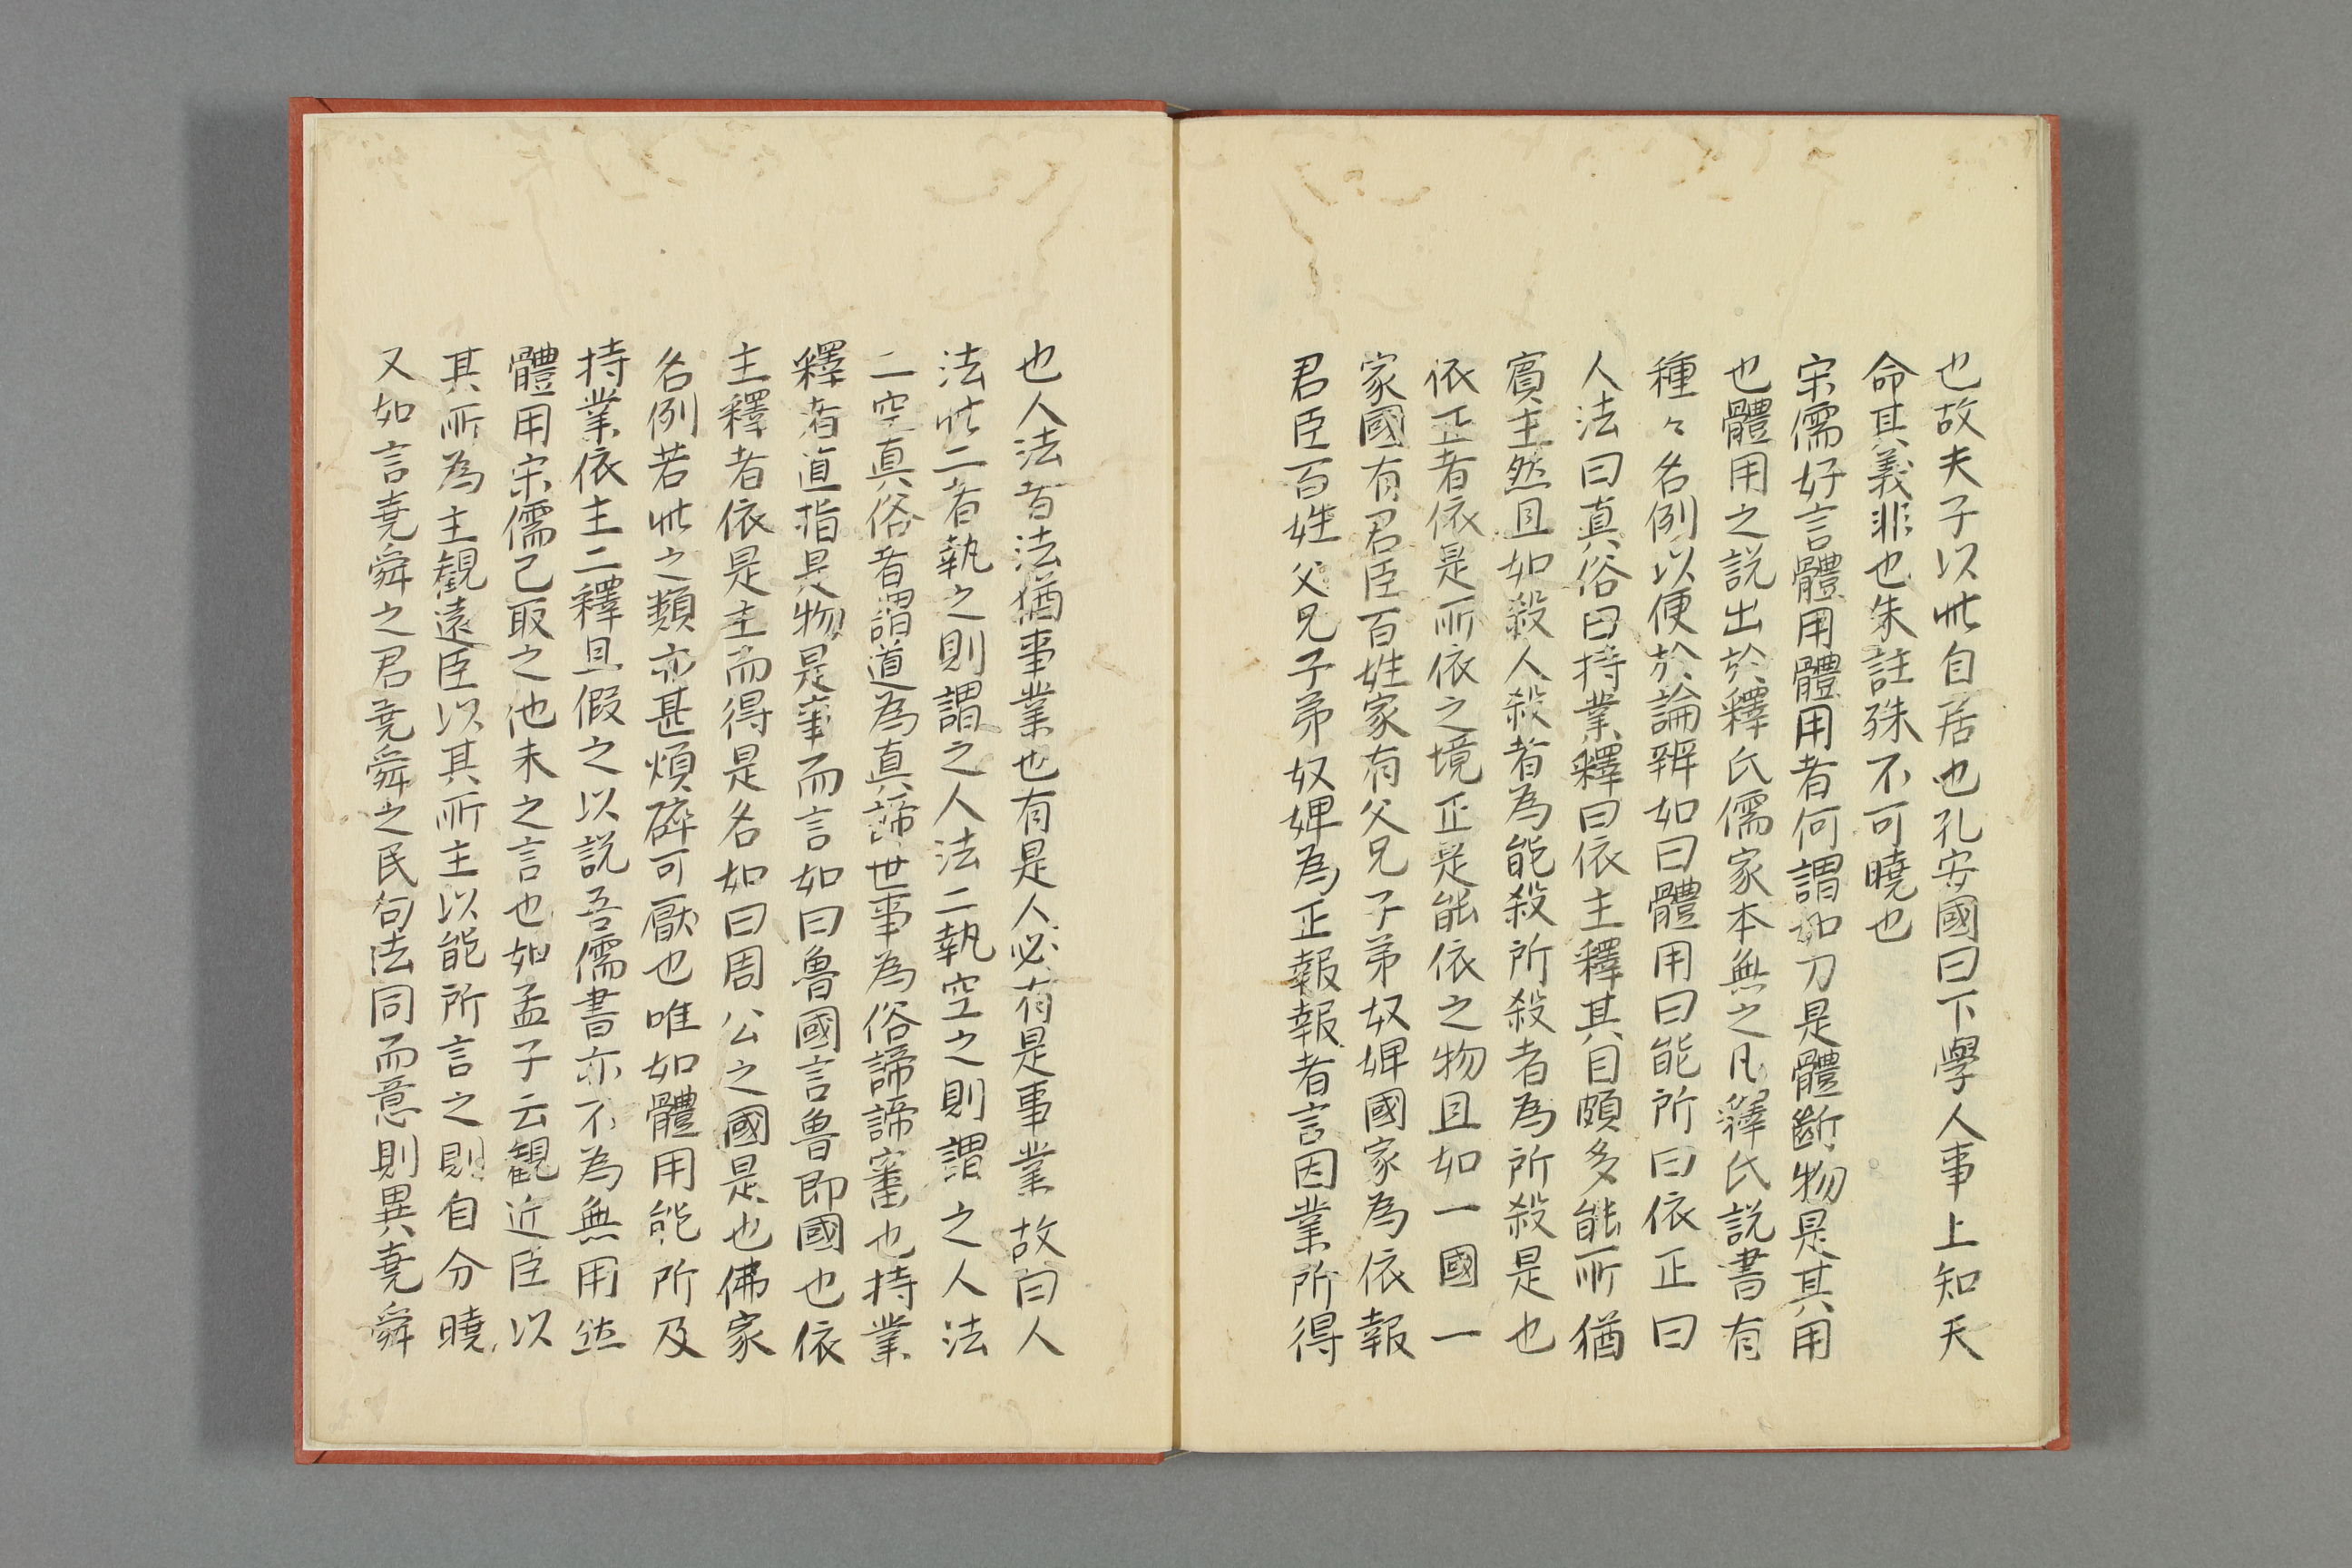 也故夫子以此自居也孔安國曰下學人事上知天
命其義非也朱註殊不可曉也
宋儒好言體用體用者何謂如刀是體斷物是其用
也體用之説出於釋氏儒家本無之凡釋氏説書有
種々名例以便於論辨如曰體用曰能所曰依正曰
人法曰真俗曰持業釋曰依主釋其目頗多能所猶
賓主然且如殺人殺者為能殺所殺者為所殺是也
依正者依是所依之境正是能依之物且如一國一
家國有君臣百姓家有父兄子弟奴婢國家為依報
君臣百姓父兄子弟奴婢為正報報者言因業所得
也人法者法猶事業也有是人必有是事業故曰人
法此二者執之則謂之人法二執空之則謂之人法
二空真俗者謂道為真諦世事為俗諦諦審也持業
釋者直指是物是事而言如曰魯國言魯即國也依
主釋者依是主而得是名如曰周公之國是也佛家
名例若此之類亦甚煩碎可厭也唯如體用能所及
持業依主二釋且假之以説吾儒書亦不為無用然
體用宋儒已取之他未之言也如孟子云観近臣以
其所為主観遠臣以其所主以能所言之則自分曉
又如言堯舜之君堯舜之民句法同而意則異堯舜